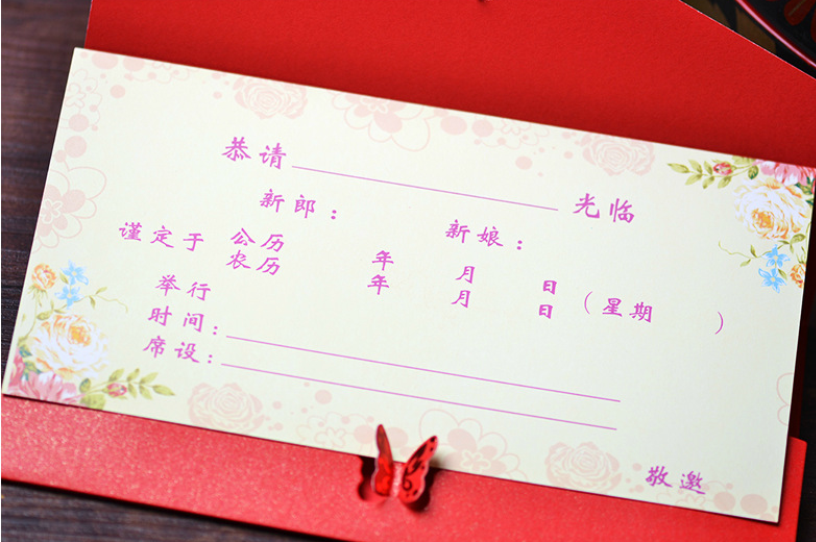 恭请 光临
新郎： 新娘：
谨定于 公历 年 月 日（星期 ）
农历 年 月 日
举行
时间：
席设：
敬邀